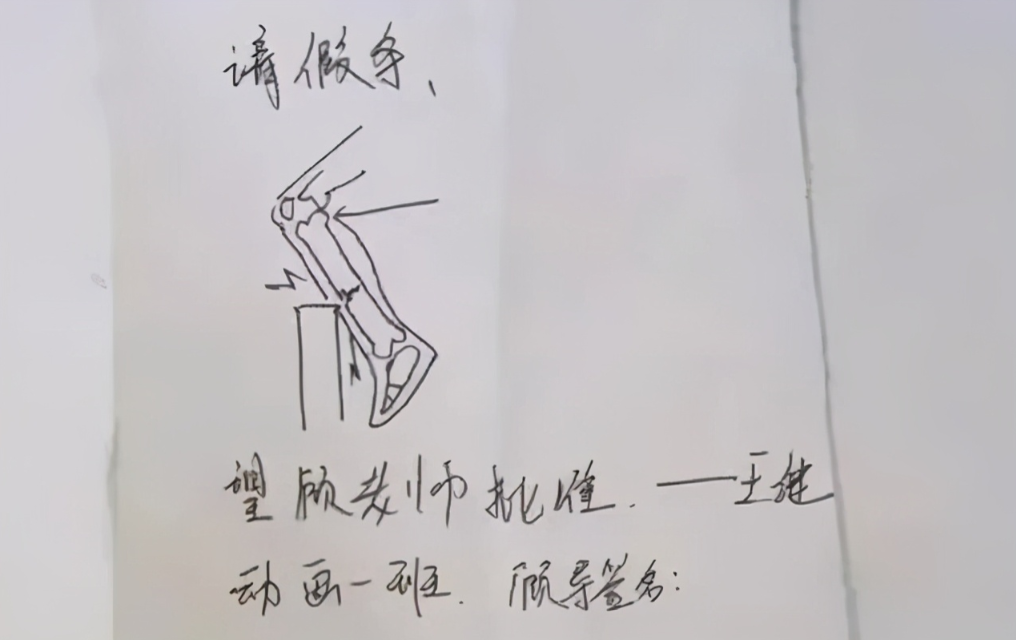 请假条、
望顾老师批准.——王继
动画一班. 顾导签名: